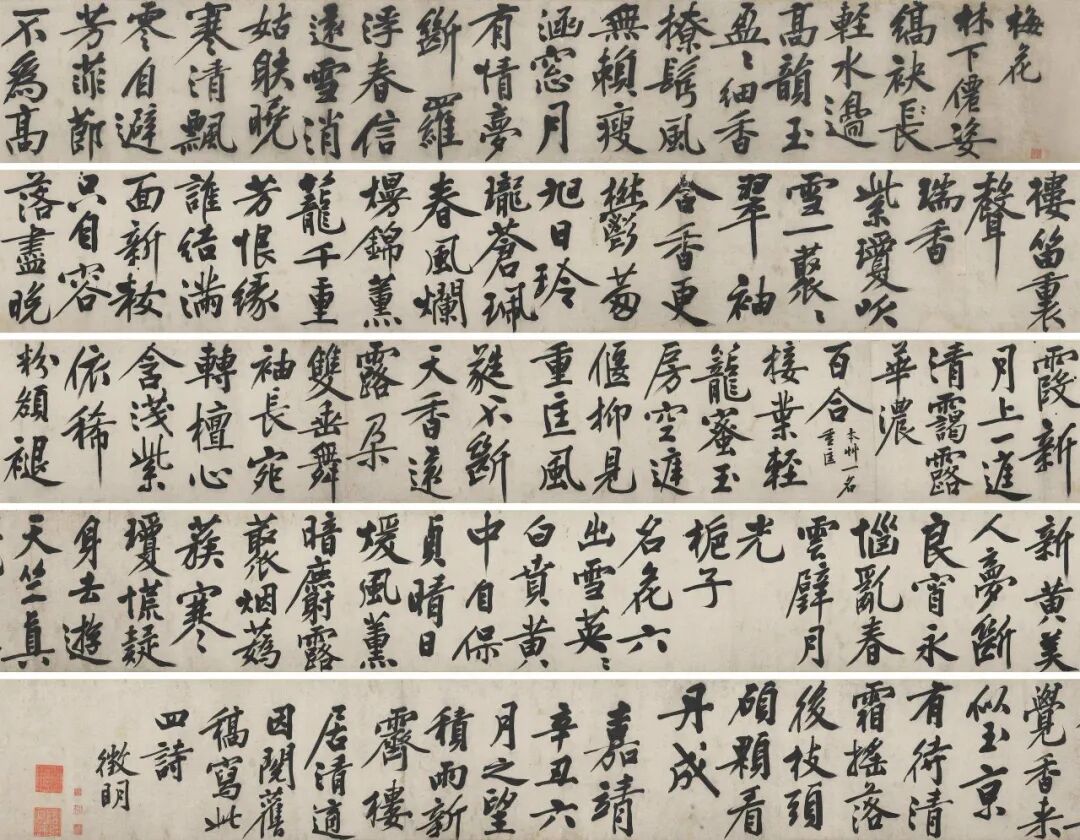 梅花
林下僊姿
縞袂長
輕水邊
高韻玉
盈〻細香
撩鬢風
無賴瘦
涵窓月
有情夢
斷羅
浮春信
遠雪消
姑射曉
寒清飄
零自避
芳菲節
不為高
樓笛裏
聲
瑞香
紫瓊吹
雪一叢〻
翠袖
合香更
鬱
旭日玲
瓏蒼珮
春風爛
熳錦薰
籠千重
芳恨緣
誰結滿
面新妝
只自容
落盡晚
霞新
月上一庭
清靄露
華濃
百合 本草一名
重匡
接葉輕
籠蜜玉
房空庭
偃抑見
重匡風
蕤不斷
天香遠
露朵
雙垂舞
袖長宛
轉檀心
含淺紫
依稀
粉額褪
新黃美
人夢斷
良宵永
惱亂春
雲劈月
光
梔子
名花六
出雪英〻
白賁黃
中自保
貞晴日
煖風薰
暗麝露
叢烟
蔟寒
瓊慌疑
身去遊
天竺真
覺香來
似玉京
有待清
霜搖落
後枝頭
碩顆看
丹成
嘉靖
辛丑六
月之望
積雨新
霽樓
居清適
因閱舊
稿寫此
四詩
徵明